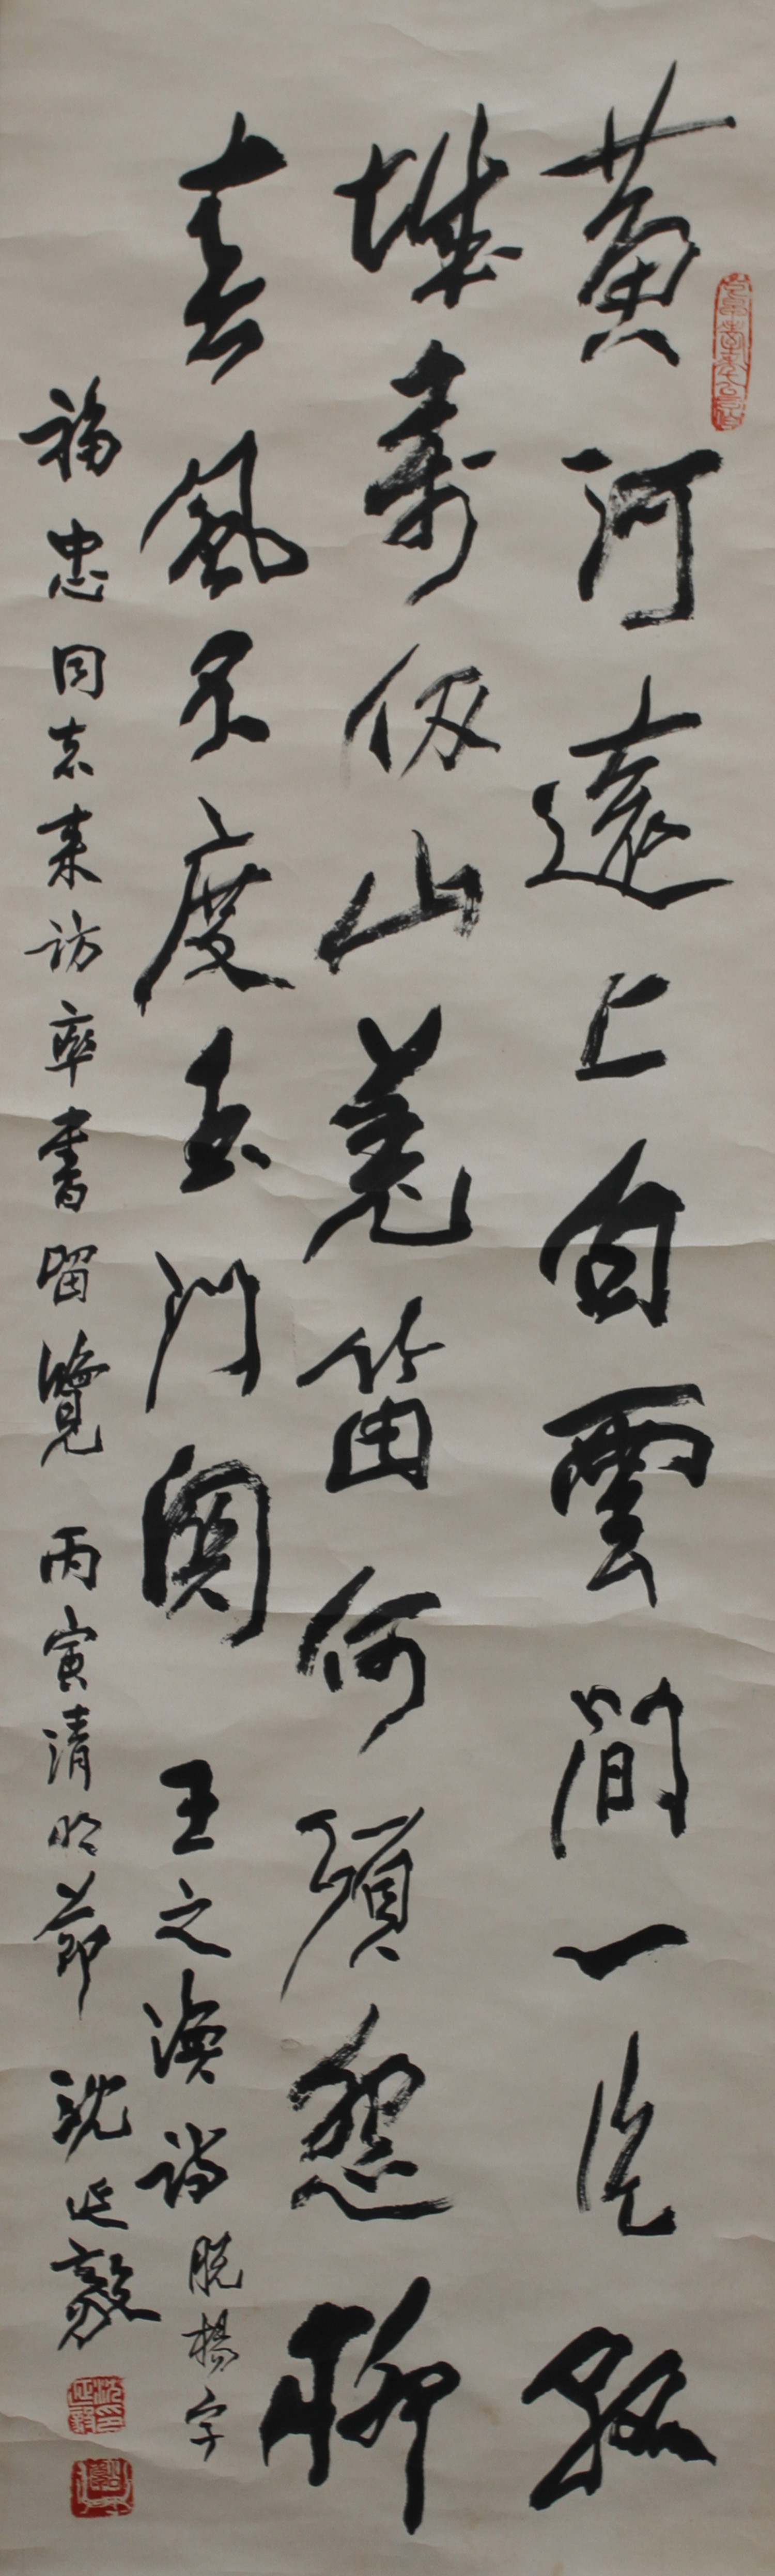 黄河遠上白雲間一片孤
城萬仞山羌笛何須怨柳
春風不度玉門關 王之渙詩 脱楊字
福忠同志来访率書留覽 丙寅清明節 沈延毅